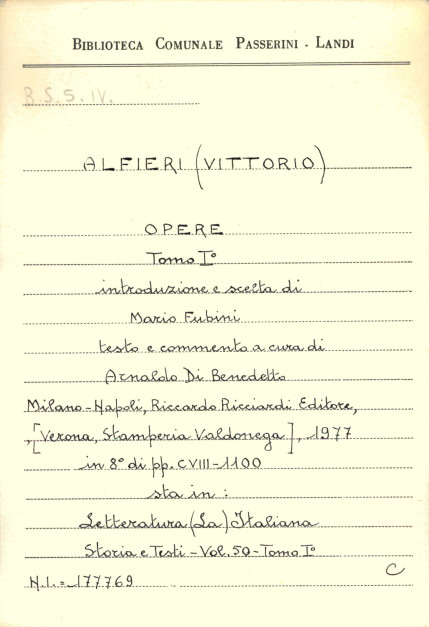 BIBLIOTECA COMUNALE PASSERINI - LANDI
B.S. 5. IV.
ALFIERI (VITTORIO)
OPERE
Tomo I°
introduzione e scelta di
Mario Fubini
testo e commento a cura di
Arnaldo Di Benedetto
Milano-Napoli, Riccardo Ricciardi Editore,
,[Verona, Stamperia Valdonega], 1977
in 8° di pp. CVIII-1100
sta in :
Letteratura (La) Italiana
Storia e Testi - Vol. 50 - Tomo I°
N.I. = 177769
C